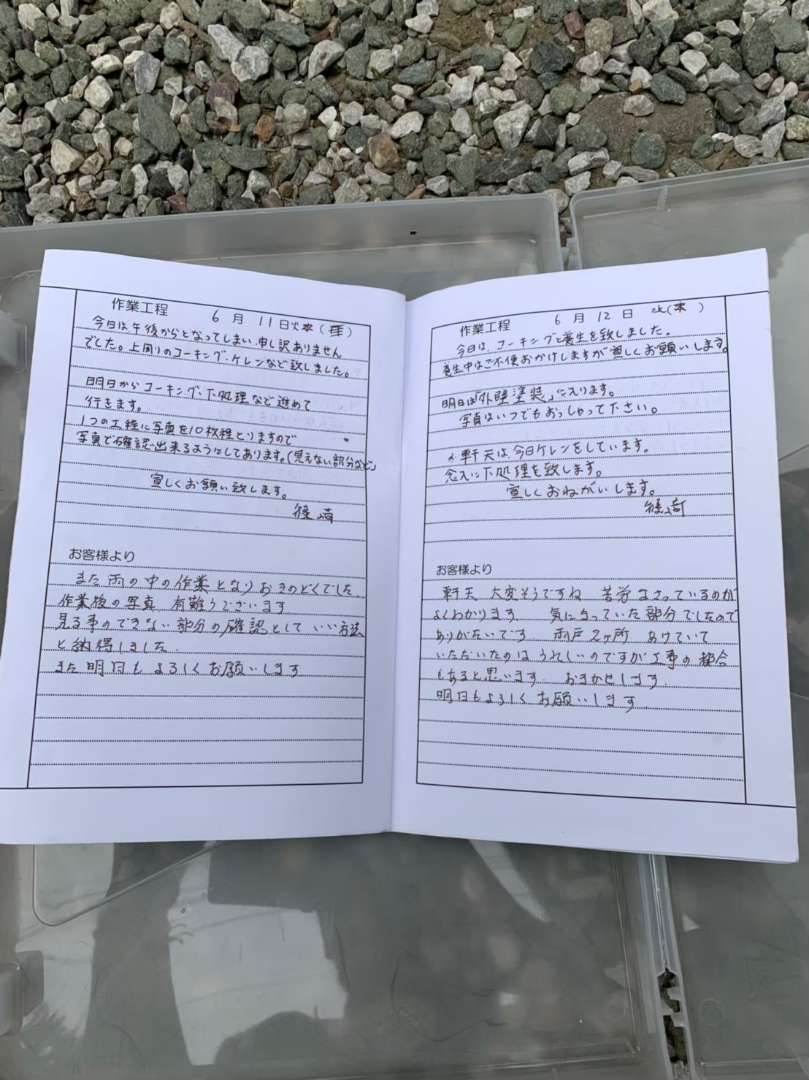 作業工程 6月 11日
今日は午後からとなってしまい、申し訳ありません
でした。上周りのコーキング・ケレンなど致しました。
明日からコーキング・下処理など進めて
行きます。
1つの工程に写真を10枚程とりますので
写真で確認出来るようにしてあります。(見えない部分など)
宜しくお願い致します。
お客様より
また雨の中の作業となりおきのどくでした
作業後の写真 有難うございます
見る事のできない部分の確認として いい方法
と納得しました
また明日もよろしくお願いします
作業工程 6月 12日
今日は、コーキングと養生を致しました。
養生中はご不便おかけしますが宜しくお願いします。
明日は「外壁塗装」に入ります。
写真はいつでもおっしゃって下さい。
軒天は今日ケレンをしています。
念入に下処理を致します。
宜しくおねがいします。
お客様より
軒天 大変そうですね 苦労なさっているのが
よくわかります 気になっていた部分でしたので
ありがたいです 雨戸2ヶ所 あけていて
いただいたのはうれしいのですが工事の都合
もあると思います おまかせします
明日もよろしくお願いします